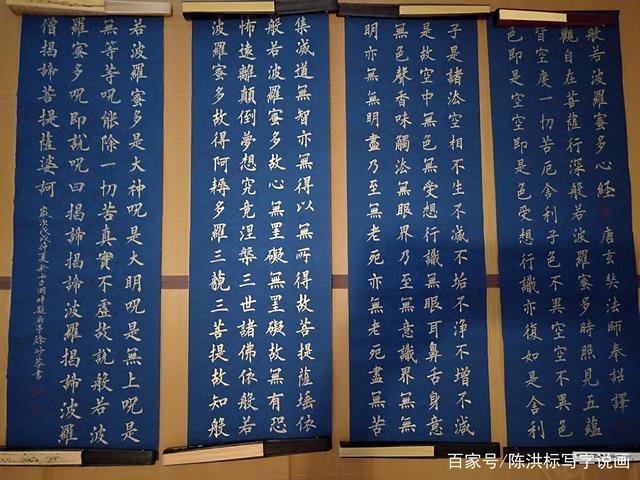 般若波羅蜜多心経 唐玄奘法師奉詔譯
觀自在菩薩行深般若波羅蜜多時照見五蘊
皆空度一切苦厄舍利子色不異空空不異色
色即是空空即是色受想行識亦復如是舍利
子是諸法空相不生不滅不垢不净不增不減
是故空中無色無受想行識無眼耳鼻舌身意
無色聲香味觸法無眼界乃至無意識界無無
明亦無無明盡乃至無老死亦無老死盡無苦
集滅道無智亦無得以無所得故菩提薩埵依
般若波羅蜜多故心無罣礙無罣礙故無有恐
怖遠離顛倒夢想究竟涅槃三世諸佛依般若
波羅蜜多故得阿耨多羅三藐三菩提故知般
若波羅蜜多是大神呪是大明呪是無上呪是
無等等呪能除一切苦真實不虛故說般若波
羅蜜多呪即說呪曰揭諦揭諦波羅揭諦波羅
僧揭諦菩提薩婆訶 歲次戊戌仲夏於
百家号/陈洪标写字说画